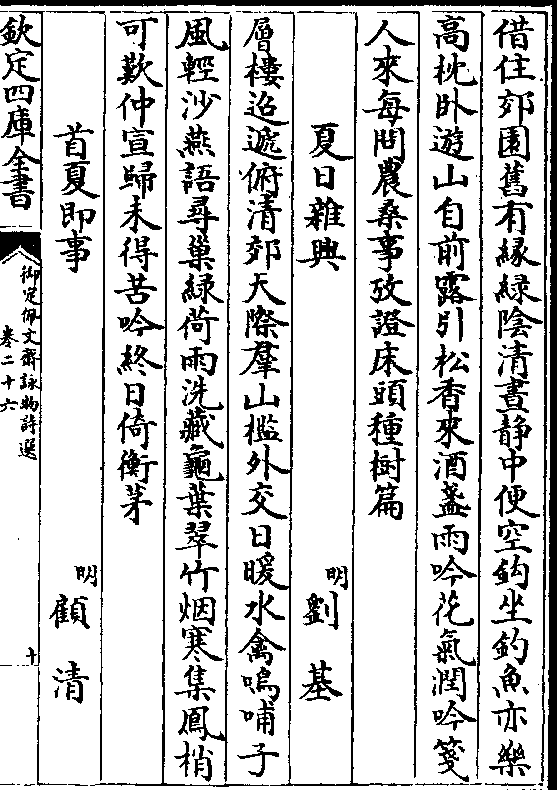 借住郊園舊有縁緑陰清晝静中便空鈎坐釣魚亦樂
高枕卧遊山自前露引松香來酒盞雨吟花氣潤吟箋
人來每問農桑事攷證床頭種樹篇
夏日雜興 明 劉基
層樓迢遞俯清郊天際羣山檻外交日暖水禽鳴哺子
風輕沙燕語尋巢緑荷雨洗藏龜葉翠竹烟寒集鳳梢
可歎仲宣歸未得苦吟終日倚衡茅
首夏即事 明 顧清
欽定四庫全書 御定佩文齋詠物詩選 卷二十六 十